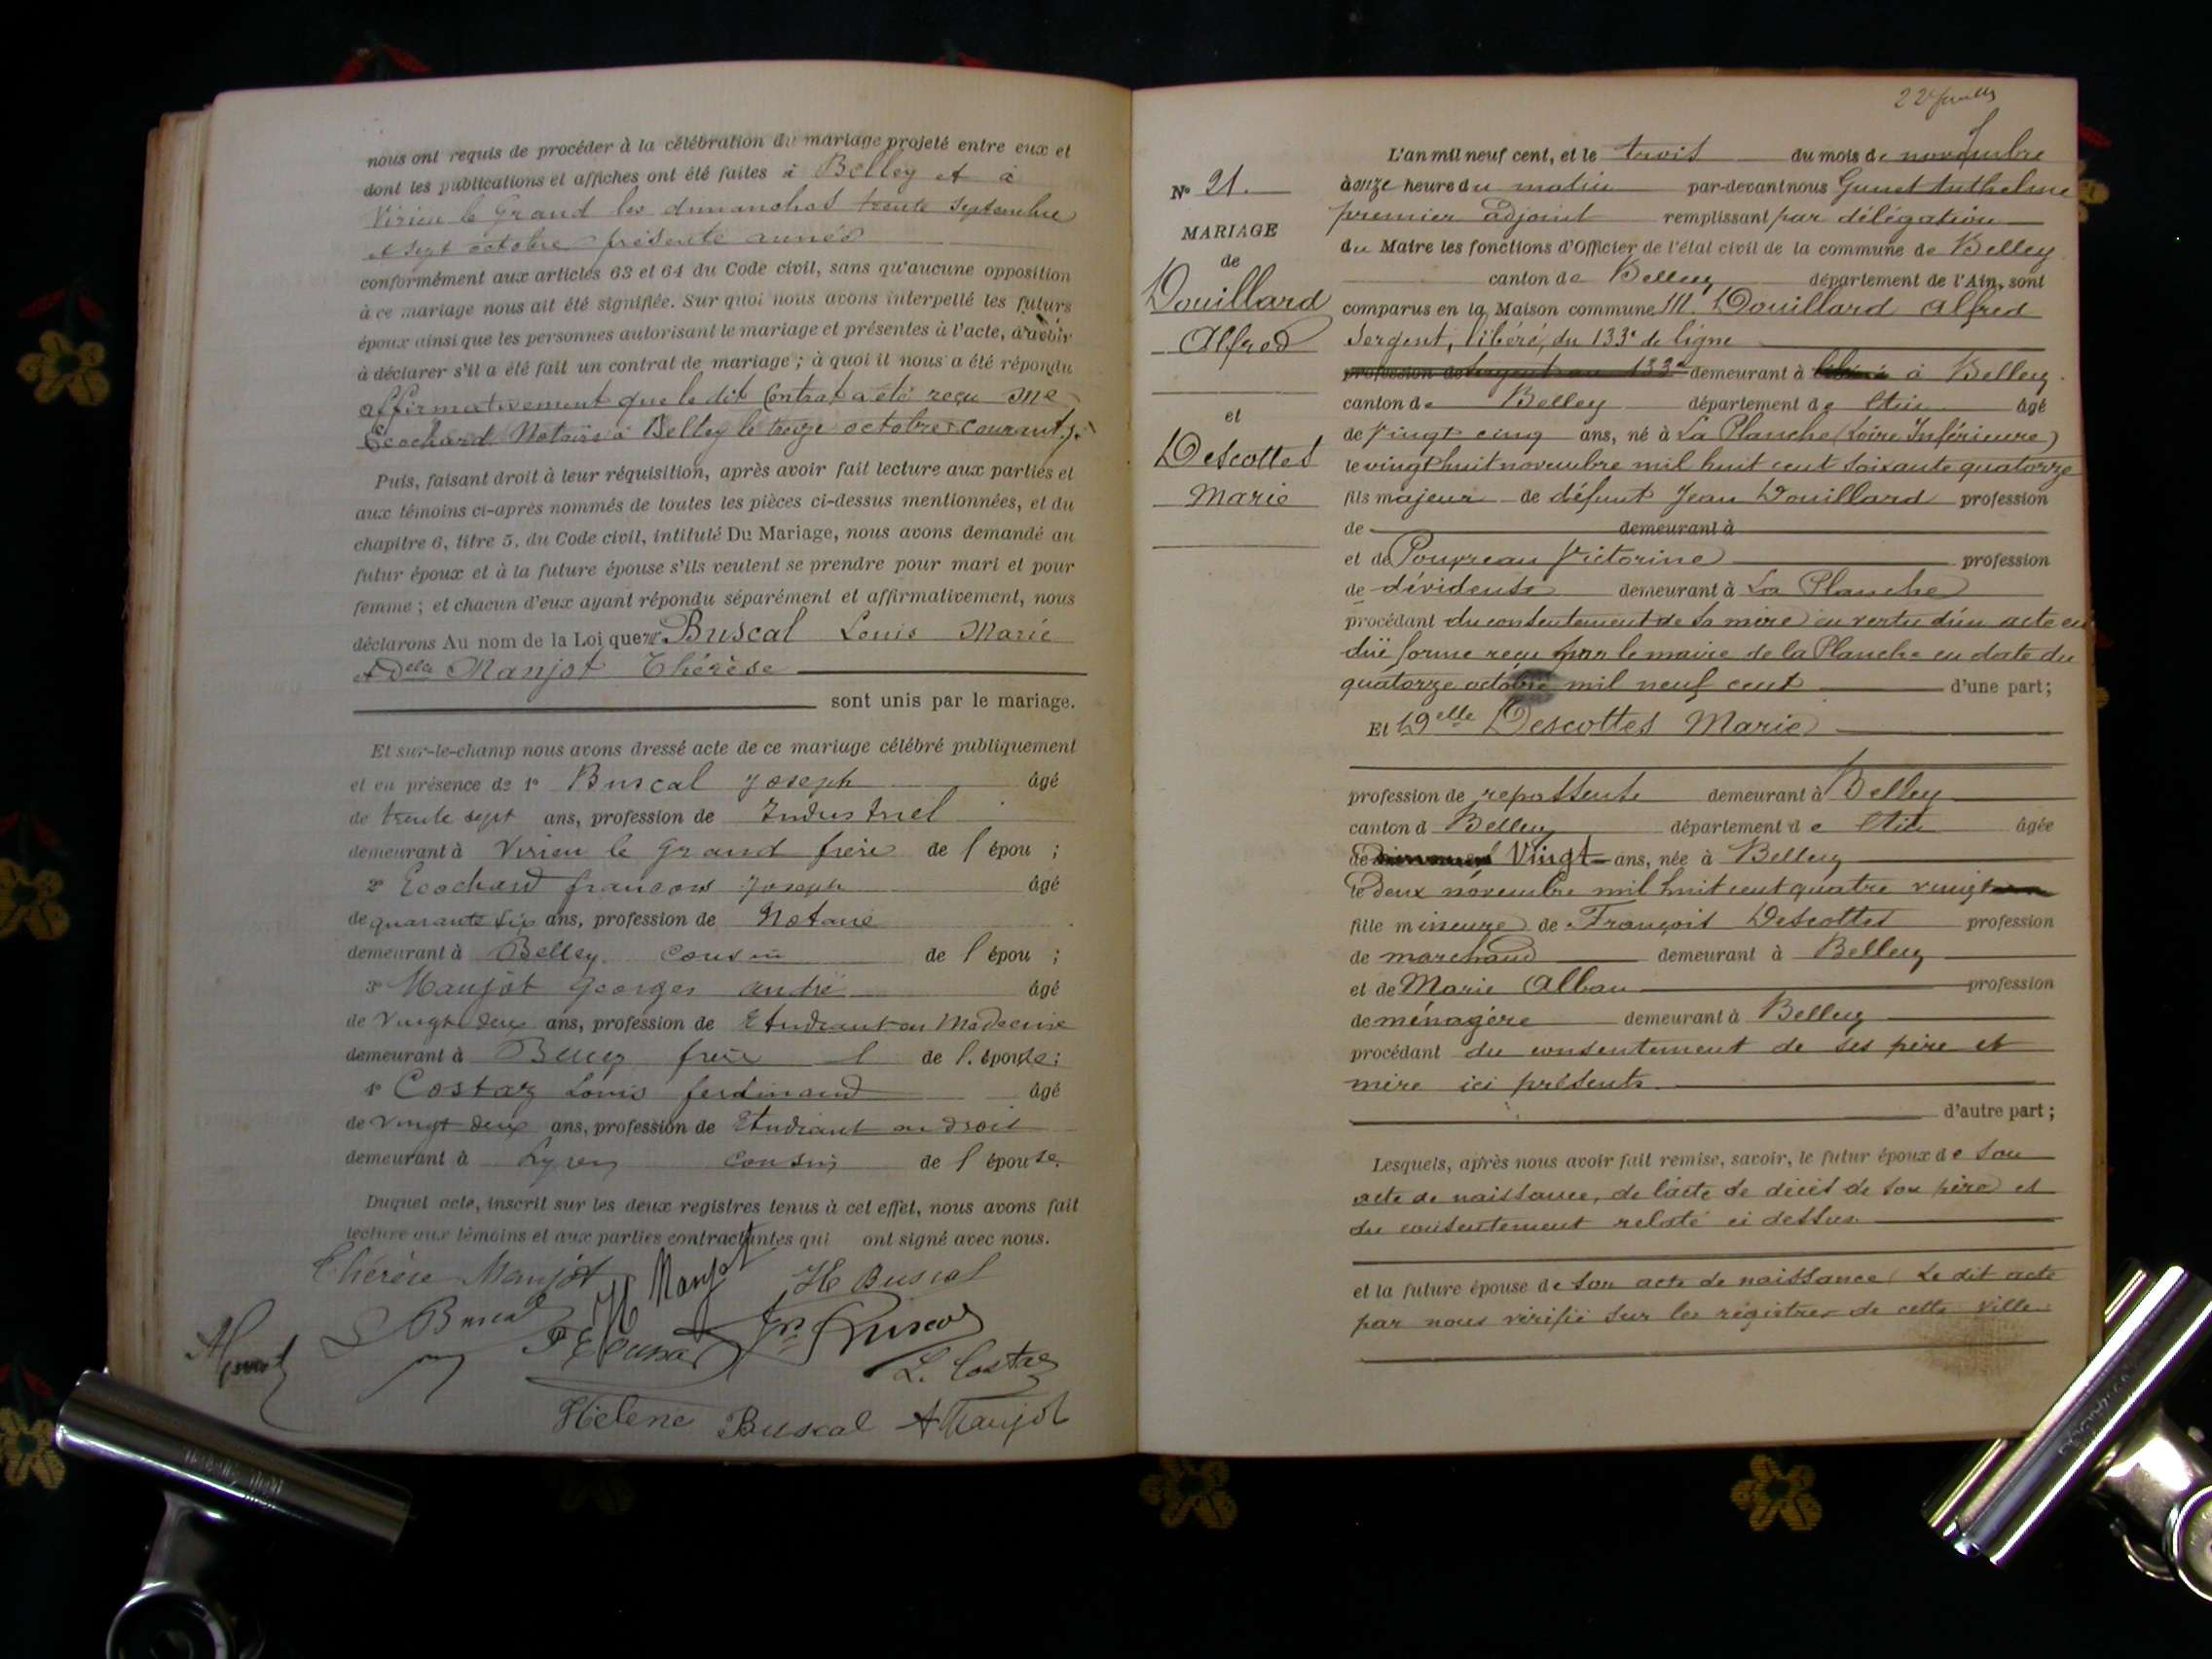 nous ont requis de procéder à la célébration du mariage projeté entre eux et
dont les publications et affiches ont été faites à Belley et à
Virieu le Grand les dimanches trente septembre
et sept octobre présente année
conformément aux articles 63 et 64 du Code civil, sans qu'aucune opposition
à ce mariage nous ait été signifiée. Sur quoi nous avons interpellé les futurs
époux ainsi que les personnes autorisant le mariage et présentes à l'acte, d'avoir
à déclarer s'il a été fait un contrat de mariage ; à quoi il nous a été répondu
affirmativement que le dit Contrat a été reçu Me
Ecochard Notaire à Belley le treize octobre courant
Puis, faisant droit à leur réquisition, après avoir fait lecture aux parties et
aux témoins ci-après nommés de toutes les pièces ci-dessus mentionnées, et du
chapitre 6, titre 5, du Code civil, intitulé Du Mariage, nous avons demandé au
futur époux et à la future épouse s'ils veulent se prendre pour mari et pour
femme ; et chacun d'eux ayant répondu séparément et affirmativement, nous
déclarons Au nom de la Loi que Mr Buscal Louis Marie
et Delle Manjot Thérèse
sont unis par le mariage.
Et sur-le-champ nous avons dressé acte de ce mariage célébré publiquement
et en présence de 1º Buscal Joseph âgé
de trente sept ans, profession de Industriel
demeurant à Virieu le Grand frère de l épou ;
2º Ecochard françois Joseph âgé
de quarante six ans, profession de Notaire
demeurant à Belley cousin de l épou ;
3º Manjot Georges andré âgé
de Vingt deux ans, profession de Etudiant en Médecine
demeurant à Belley frère de l. épouse ;
4º Costaz Louis ferdinand âgé
de vingt deux ans, profession de Etudiant en droit
demeurant à Lyon cousin de l épouse.
Duquel acte, inscrit sur les deux registres tenus à cet effet, nous avons fait
lecture aux témoins et aux parties contractantes qui ont signé avec nous.
Thérèse Manjot H Manjot H Buscal
L Buscal
L. Costaz
Hélène Buscal A Manjot
22
Nº 21.
MARIAGE
de
Douillard
Alfred
et
Descottes
Marie
L'an mil neuf cent, et le trois du mois de novembre
à onze heure du matin par-devant nous Gunet Anthelme
premier adjoint remplissant par délégation
du Maire les fonctions d'Officier de l'état civil de la commune de Belley
canton de Belley département de l'Ain, sont
comparus en la Maison commune M. Douillard Alfred
Sergent, libéré, du 133e de ligne
profession de sergent au 133e demeurant à libéré à Belley.
canton de Belley département de l'Ain âgé
de vingt cinq ans, né à La Planche (Loire Inférieure)
le vingt huit novembre mil huit cent soixante quatorze
fils majeur de défunt Jean Douillard profession
de demeurant à
et de Poupreau Victorine profession
de dévideuse demeurant à La Planche
procédant du consentement de sa mère en vertu d'un acte en
due forme reçu par le maire de la Planche en date du
quatorze octobre mil neuf cent d'une part ;
Et Delle Descottes Marie
profession de repasseuse demeurant à Belley
canton d Belley département de l'Ain âgée
de Vingt ans, née à Belley
le deux novembre mil huit cent quatre vingt
fille mineure de François Descottes profession
de marchand demeurant à Belley
et de Marie Alban profession
de ménagère demeurant à Belley
procédant du consentement de ses père et
mère ici présents.
d'autre part ;
Lesquels, après nous avoir fait remise, savoir, le futur époux de son
acte de naissance, de l'acte de décès de son père et
du consentement relaté ci dessus
et la future épouse de son acte de naissance Le dit acte
par nous vérifié sur les registres de cette ville.